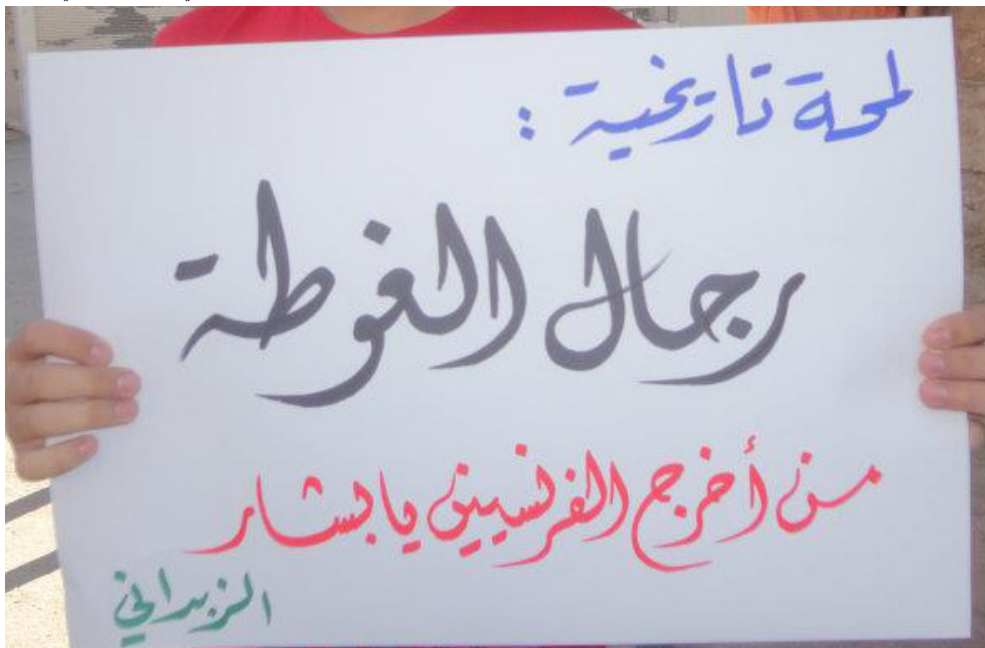 لمحة تاريخية :
رجال الغوطة
من أخرج الفرنسيين يا بشار
الزبداني